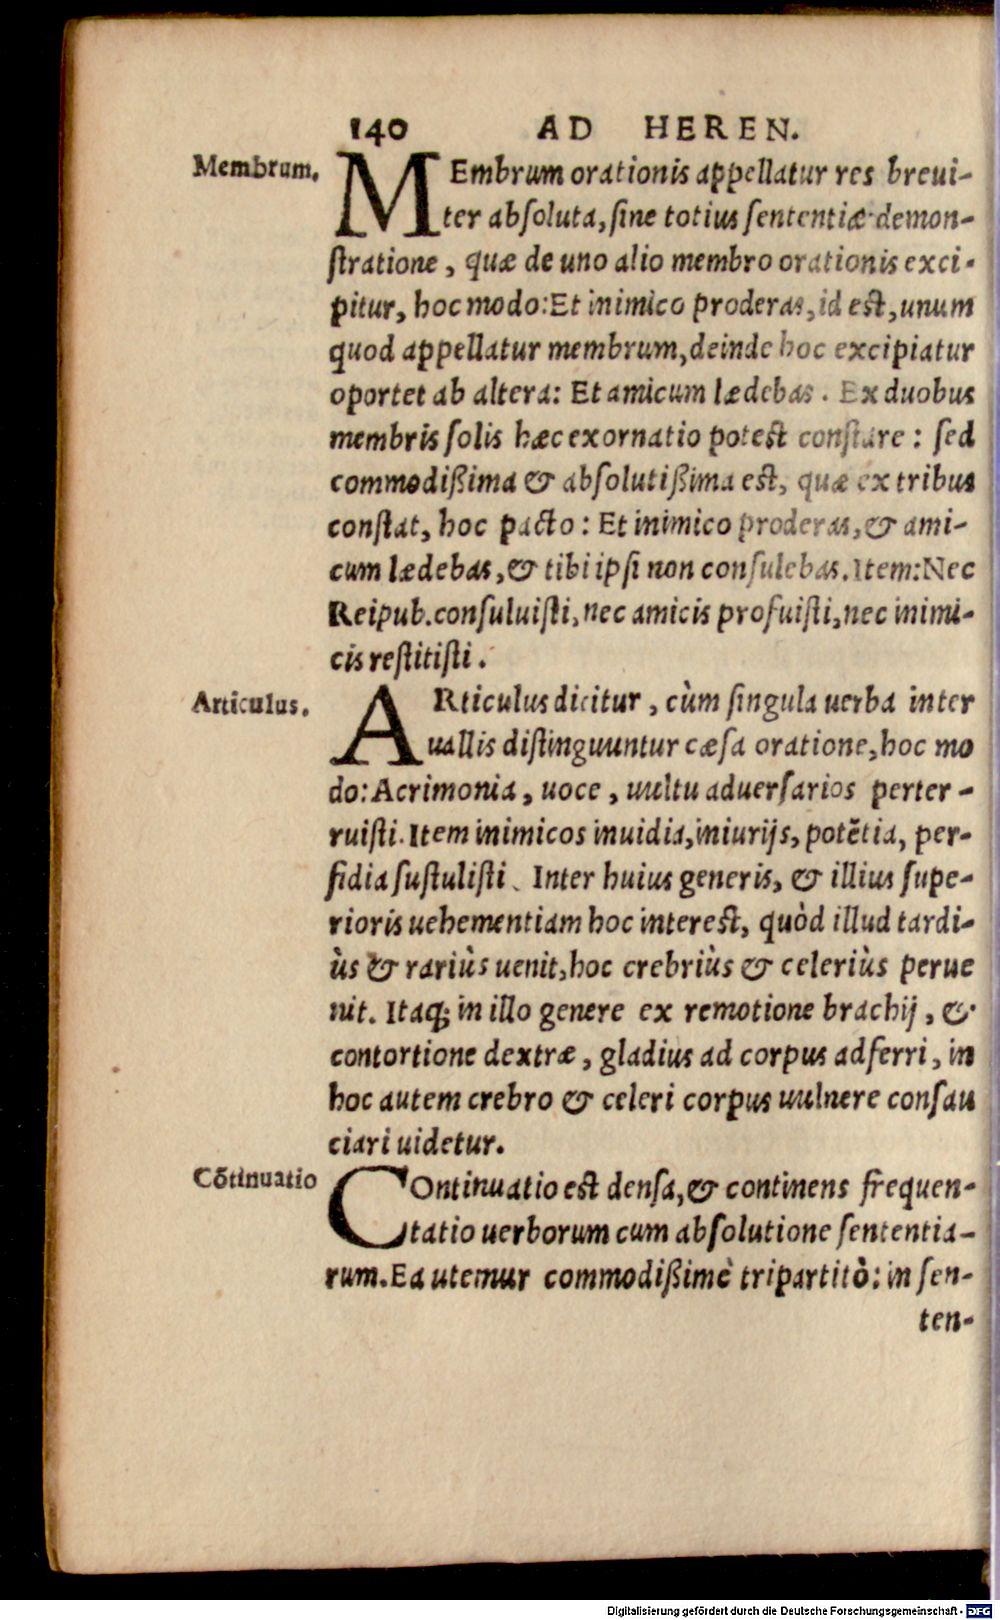 140 AD HEREN.
Membrum.
MEmbrum orationis appellatur res breui-
ter absoluta, sine totius sententiæ demon-
stratione, quæ de uno alio membro orationis exci-
pitur, hoc modo: Et inimico proderas, id est, unum
quod appellatur membrum, deinde hoc excipiatur
oportet ab altera: Et amicum lædebas. Ex duobus
membris solis hæc exornatio potest constare: sed
commodißima & absolutißima est, quæ ex tribus
constat, hoc pacto: Et inimico proderas, & ami-
cum lædebas, & tibi ipsi non consulebas. Item: Nec
Reipub. consuluisti, nec amicis profuisti, nec inimi-
cis restitisti.
Articulus.
ARticulus dicitur, cùm singula uerba inter
uallis distinguuntur cæsa oratione, hoc mo
do: Acrimonia, uoce, uultu aduersarios perter-
ruisti. Item inimicos inuidia, iniurijs, potẽtia, per-
fidia sustulisti. Inter huius generis, & illius supe-
rioris uehementiam hoc interest, quòd illud tardi-
ùs & rariùs uenit, hoc crebriùs & celeriùs perue
nit. Itaq; in illo genere ex remotione brachij, &
contortione dextræ, gladius ad corpus adferri, in
hoc autem crebro & celeri corpus uulnere consau
ciari uidetur.
Cõtinuatio
COntinuatio est densa, & continens frequen-
tatio uerborum cum absolutione sententia-
rum. Ea utemur commodißimè tripartitò: in sen-
ten-
Digitalisierung gefördert durch die Deutsche Forschungsgemeinschaft - DFG